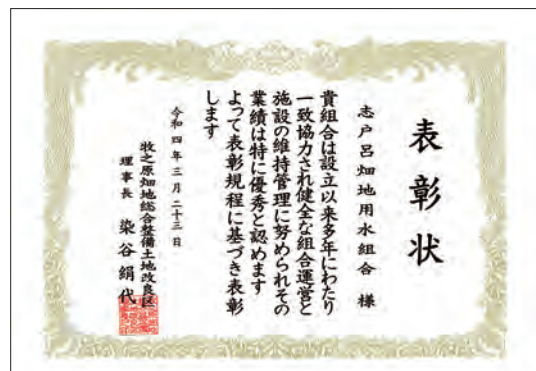 表彰状
志戸呂畑地用水組合 様
貴組合は設立以来多年にわたり
一致協力され健全な組合運営と
施設の維持管理に努められその
業績は特に優秀と認めます
よって表彰規程に基づき表彰
します
令和四年三月二十三日
牧之原畑地総合整備土地改良区
理事長 染谷絹代